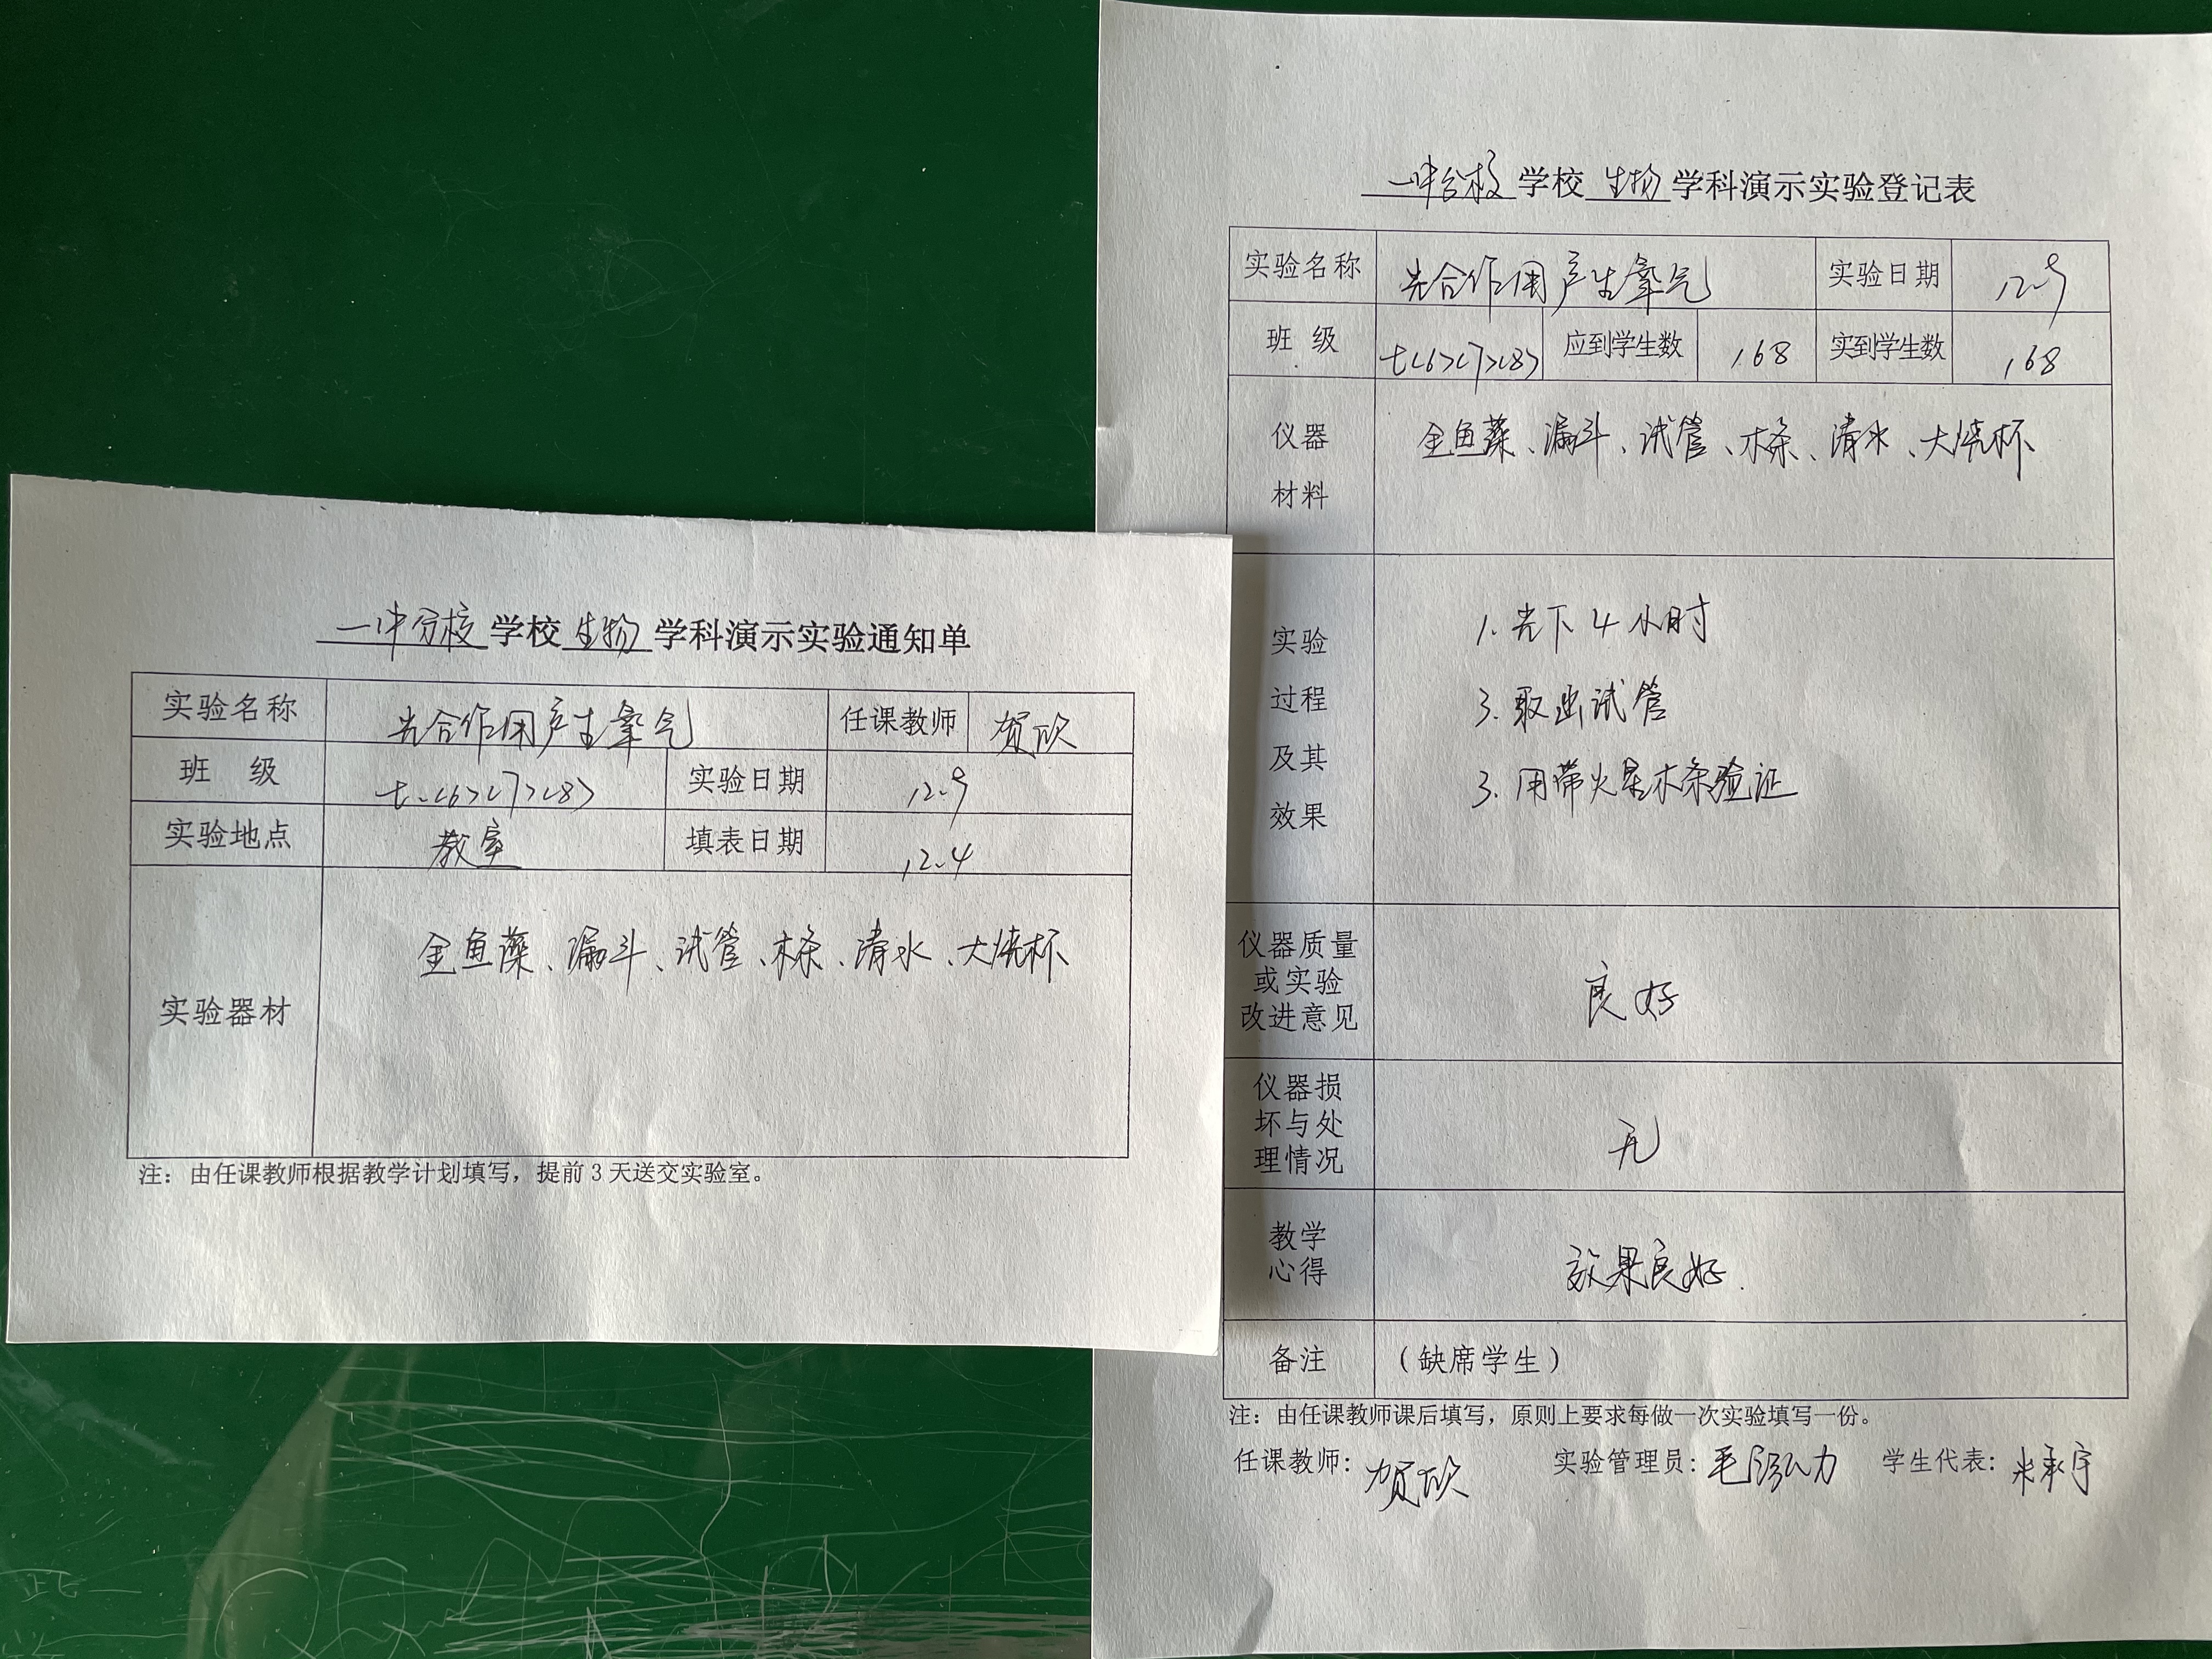 一中分校学校生物学科演示实验通知单
实验名称 光合作用产生氧气 任课教师 贺欣
班 级 七.<6><7><8> 实验日期 12.9
实验地点 教室 填表日期 12.4
实验器材 金鱼藻、漏斗、试管、木条、清水、大烧杯
注：由任课教师根据教学计划填写，提前3天送交实验室。
一中分校学校生物学科演示实验登记表
实验名称 光合作用产生氧气 实验日期 12.9
班 级 七<6><7><8> 应到学生数 168 实到学生数 168
仪器
材料
金鱼藻、漏斗、试管、木条、清水、大烧杯
实验
过程
及其
效果
1. 光下4小时
3. 取出试管
3. 用带火星木条验证
仪器质量
或实验
改进意见
良好
仪器损
坏与处
理情况
无
教学
心得
效果良好.
备注 （缺席学生）
注：由任课教师课后填写，原则上要求每做一次实验填写一份。
任课教师：贺欣 实验管理员：毛 力 学生代表：承宇